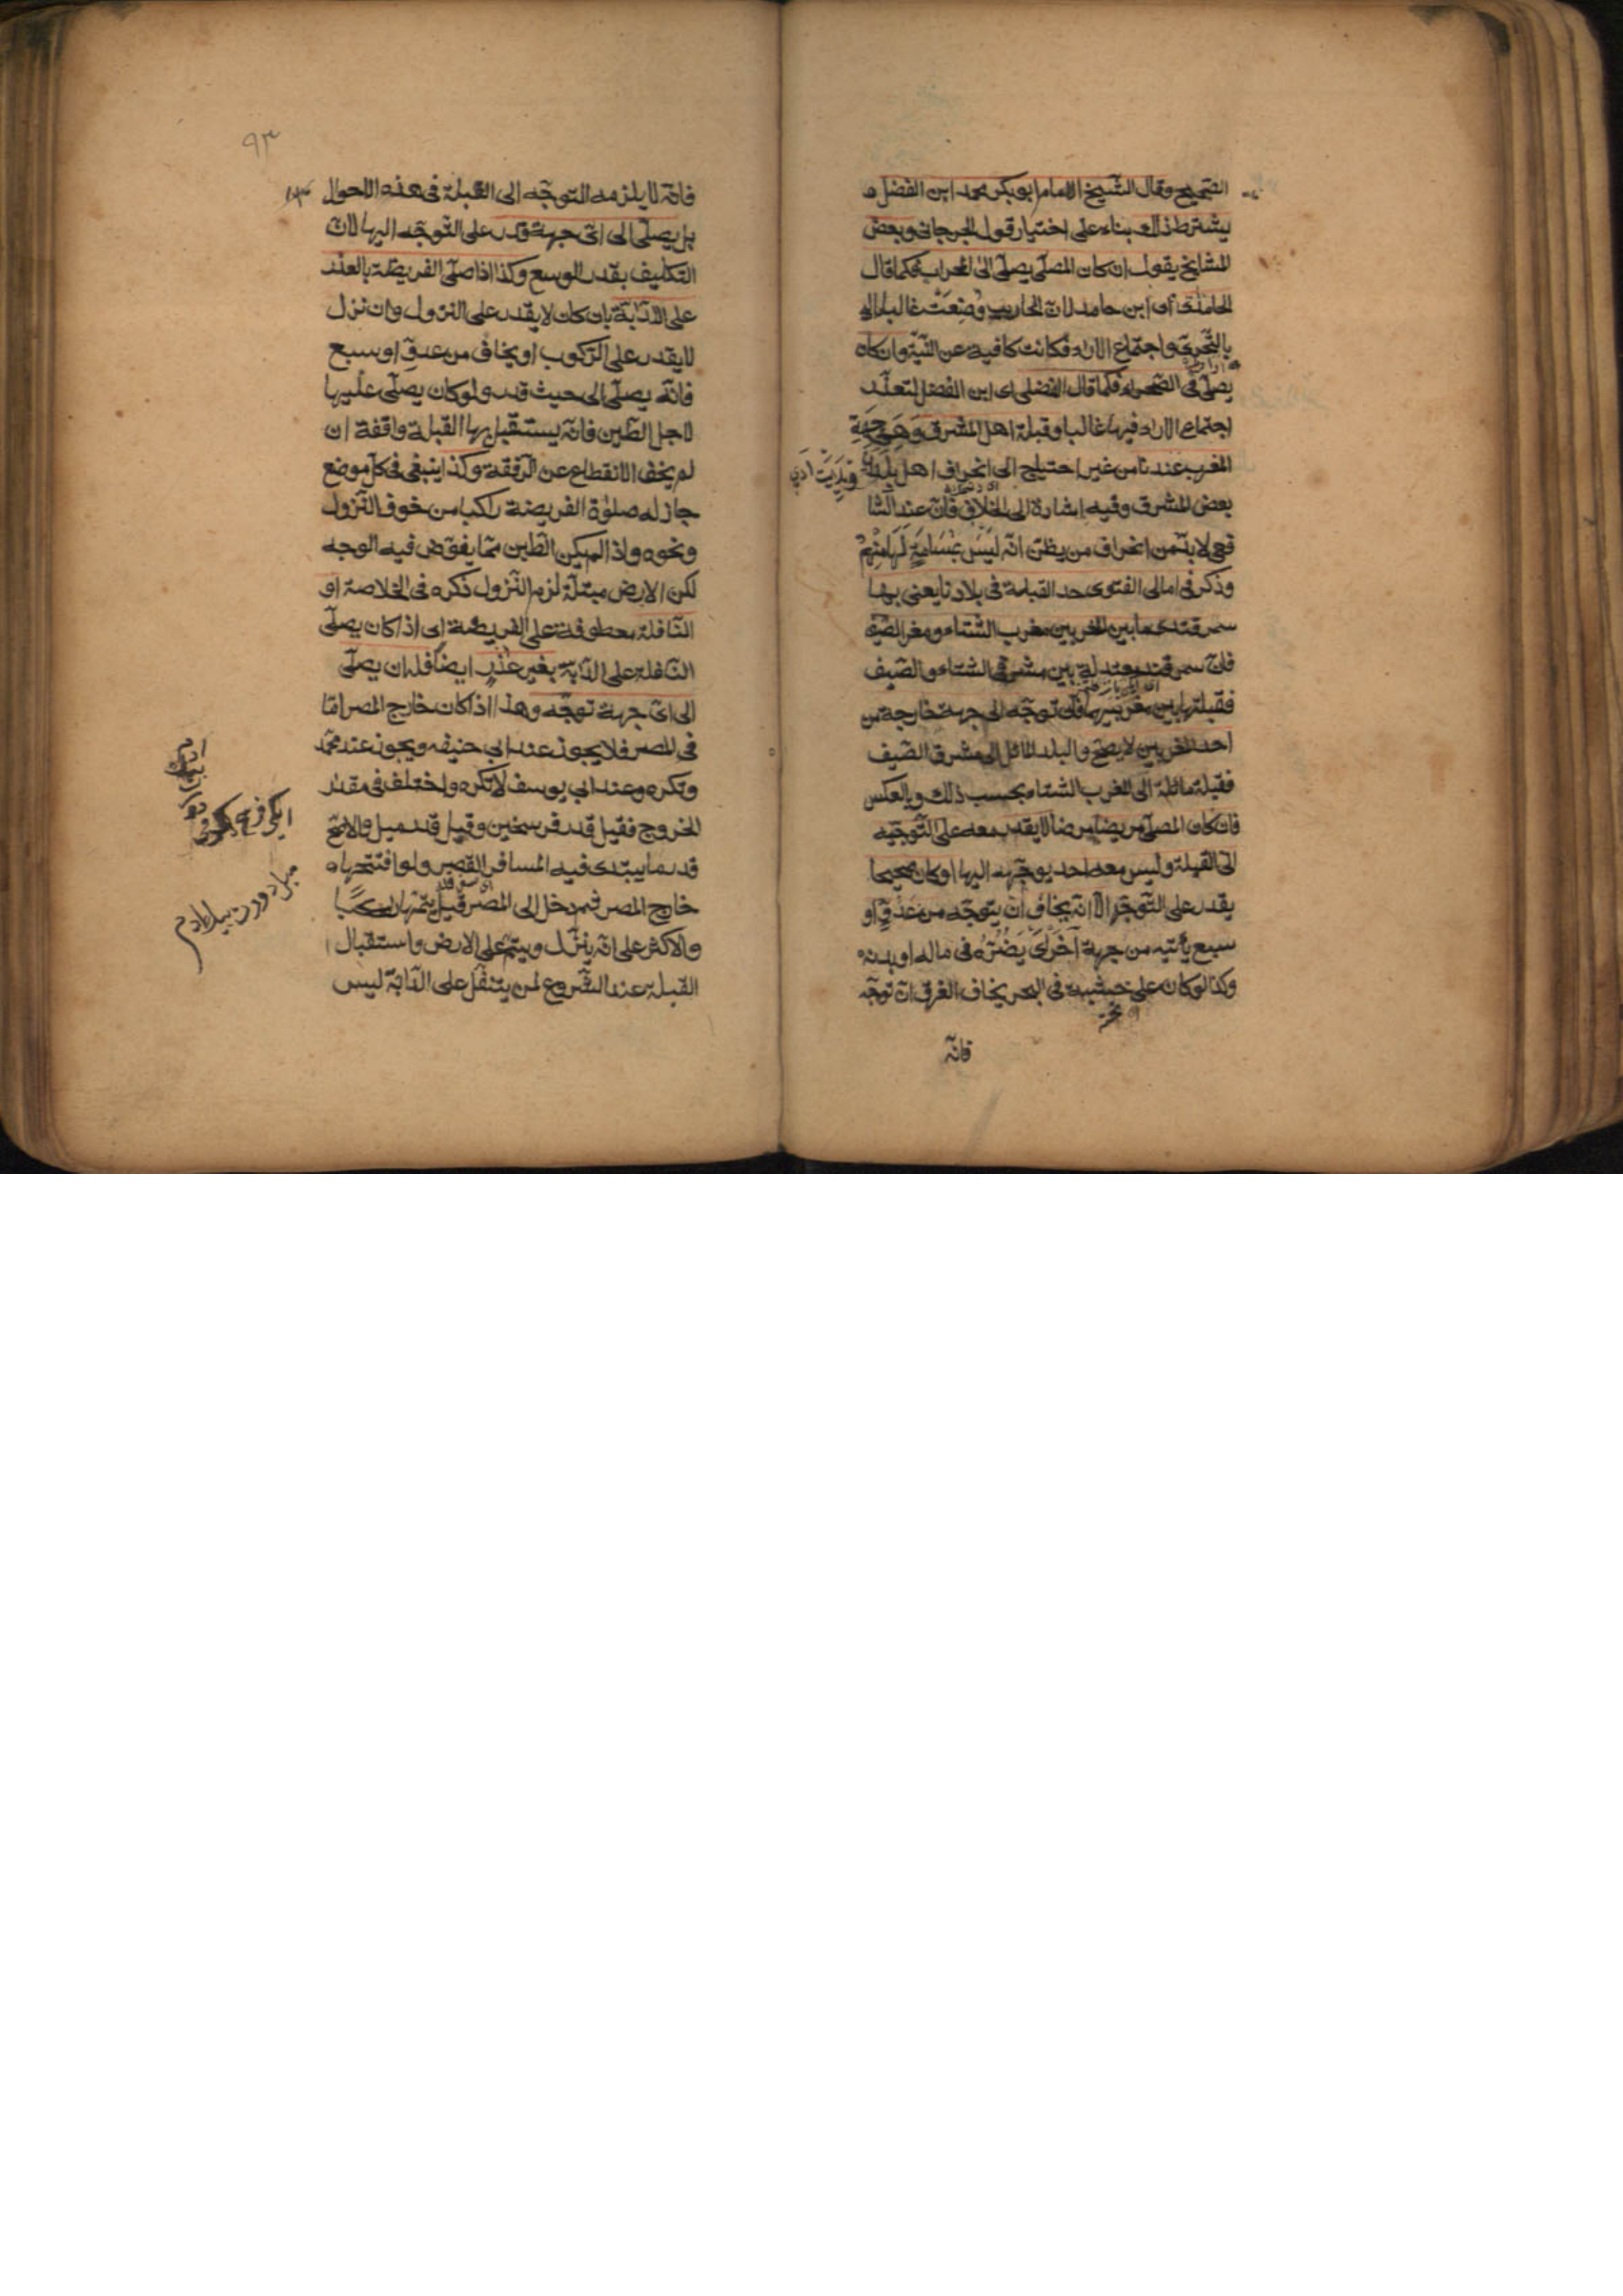 الصحيح وقال الشيخ الامام ابو بكر محمد ابن الفضل
يشترط ذلك بناء على اختيار قول الجرجاني وبعض
المشايخ يقول ان كان المصلى يصلى الى المحراب فكما قال
الحامدى اى ابن حامد لان المحاريب وُضِعَتْ غالبا
بالتحرى واجتماع الاراء فكانت كافية عن النية وان كان
يصلى فى الصحراء فكما قال الفضلى اى ابن الفضل لتعذر
اجتماع الاراء فيها غالبا وقبلة اهل المشرق وهى جهة
المغرب عندنا من غير احتياج الى انحراف اهل
بعض المشرق وفيه اشارة الى الخلاف فان عند الشا
فعى لا بد من انحراف من يظن انه ليس بمسامة لها منهم
وذكر فى امالى الفتوى حد القبلة فى بلادنا يعنى بها
سمرقند ما بين المغربين مغرب الشتاء ومغرب الصيف
فان سمرقند بين مشرقى الشتاء والصيف
فقبلتها بين مغربيهما فان توجه الى جهة خارجة من
احد المغربين لا يصح والبلد المائل الى مشرق الصيف
فقبلته مائلة الى المغرب الشتاء بحسب ذلك وبالعكس
فان كان المصلى مريضا مرضا لا يقدر معه على التوجيه
الى القبلة وليس معه احد يوجهه اليها او كان صحيحا
يقدر على التوجه الا انه يخاف ان يتوجه من عدوٍ او
سبع يأتيه من جهة اخرى يضره فى ماله او بدنه
وكذا لو كان على خشبة فى البحر يخاف الغرق ان توجه
فانه
٩٣
فانه لا يلزمه التوجه الى القبلة فى هذه الاحوال
بل يصلى الى اى جهة قدر على التوجه اليها لان
التكليف بقدر الوسع وكذا اذا صلى الفريضة بالعذر
على الدابة بان كان لا يقدر على النزول وان نزل
لا يقدر على الركوب او يخاف من عدوٍ او سبع
فانه يصلى الى حيث قدر ولو كان يصلى عليها
لاجل الطين فانه يستقبل بها القبلة واقفة ان
لم يخف الانقطاع عن الرفقة وكذا ينبغى فى كل موضع
جاز له صلوة الفريضة راكبا من خوف النزول
ونحوه واذا لم يكن الطين مما يغوض فيه الوجه
لكن الارض مبتلة لزم النزول ذكره فى الخلاصة او
النافلة معطوفة على الفريضة اى اذا كان يصلى
النافلة على الدابة بغير عذر ايضا فله ان يصلى
الى اى جهة توجه وهذا اذا كان خارج المصر اما
فى المصر فلا يجوز عند ابى حنيفه ويجوز عند محمد
وتكره وعند ابى يوسف لا تكره واختلف فى مقدار
الخروج فقيل قدر فرسخين وقيل قدر ميل والاصح
قدر ما يبتدى فيه المسافر القصر ولو افتتحها
خارج المصر ثم دخل الى المصر قيل يتمها راكبا
والاكثر على انه ينزل ويتم على الارض واستقبال
القبلة عند الشروع لمن يتنفل على الدابة ليس